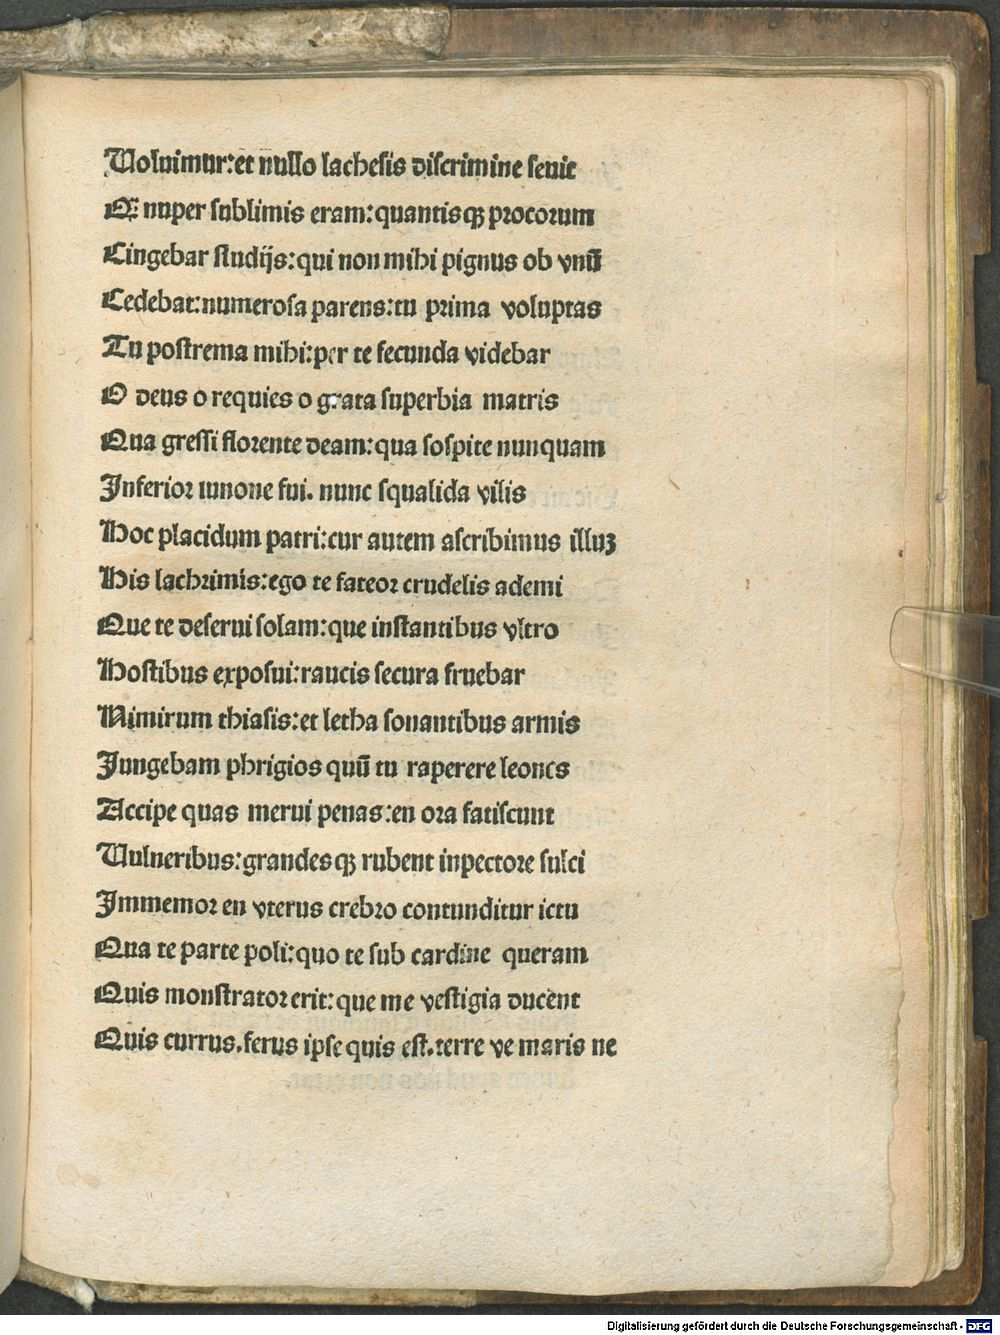 Voluimur:et nullo lachesis discrimine seuit
Q̃ nuper sublimis eram:quantisqꝫ procorum
Cingebar studijs:qui non mihi pignus ob vnũ
Cedebat:numerosa parens:tu prima voluptas
Tu postrema mihi:per te fecunda videbar
O deus o requies o grata superbia matris
Qua gressi florente deam:qua sospite nunquam
Inferior iunone fui. nunc squalida vilis
Hoc placidum patri:cur autem ascribimus illuꝫ
His lachrimis:ego te fateor crudelis ademi
Que te deserui solam:que instantibus vltro
Hostibus exposui:raucis secura fruebar
Nimirum thiasis:et letha sonantibus armis
Jungebam phrigios quũ tu raperere leones
Accipe quas merui penas:en ora fatiscunt
Vulneribus:grandesqꝫ rubent inpectore sulci
Immemor en vterus crebro contunditur ictu
Qua te parte poli:quo te sub cardine queram
Quis monstrator erit:que me vestigia ducent
Quis currus.ferus ipse quis est.terre ve maris ne
Digitalisierung gefördert durch die Deutsche Forschungsgemeinschaft - DFG